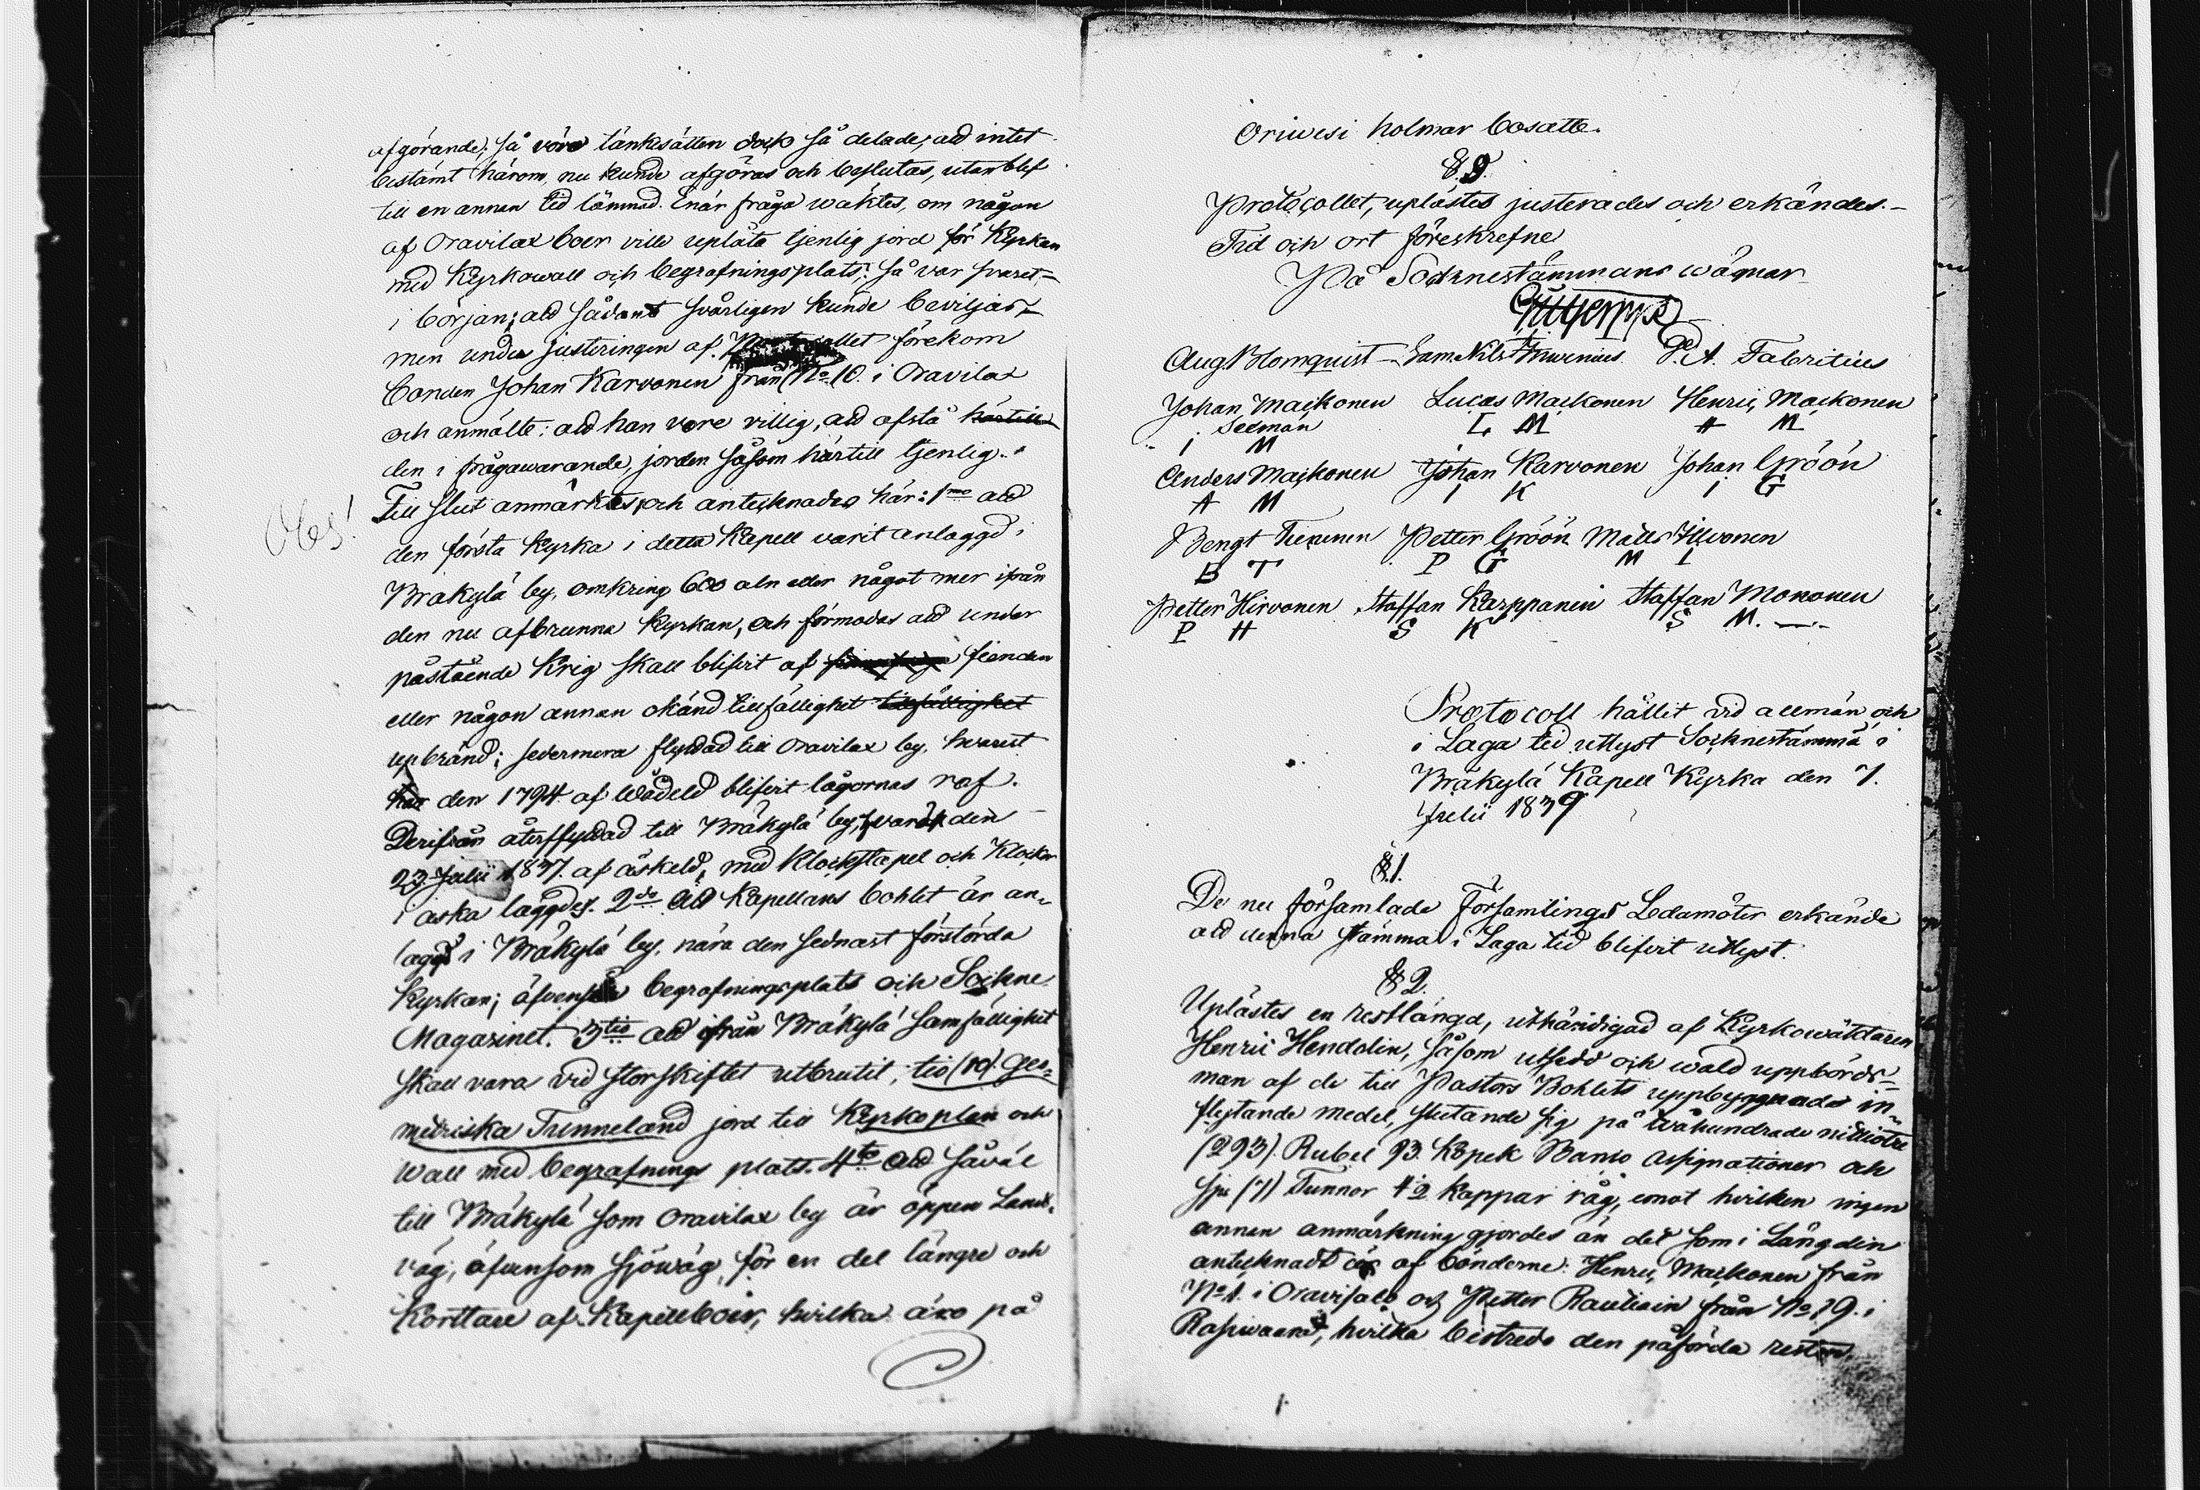 afgörande; så vóro tänkesätten dock så delade, att intet
bestämt härom, nu kunde afgöras och beslutas, utan blef
till en annan tid lämnad. Enär fråga wäktes, om någon
af Oravilax boer ville upláta tjenlig jord för Kyrkan
med Kyrkowall och begrafningsplats; så var svaret,=
i början; att sådant svårligen kunde beviljas –
men under justeringen af förekom
bonden Johan Karvonen från No 10. i Oravilax
och anmälte: att han vore villig, att afstå härtill
den i frågawarande, jorden såsom härtill tjenlig.
Till slut anmärktes, och antecknades här: 1mo att
Obs!
den första Kyrka i detta Kapell varit anlaggd i
Bräkylä by, omkring 600 aln eller något mer ifrån
den nu afbrunna Kyrkan, och förmodas att under
påstående Krig skall blifvit af fienden
eller någon annan okänd tillfällighet tillfällighet
upbränd; sedermera flyttad till Oravilax by, hvarest
har den 1794 af wådeld blifvit lågornas raf.
Derifrån återflyttad till Bräkylä by, hvarest den
23 Julii 1837. af åskeld, med Klockstapel och Klockor
i aska laggdes. 2do Att Kapellans bohlet är an-
laggd i Bräkylä by, nära den sednast förstörda
Kyrkan; äfvensom begrafningsplats och Sockne
Magazinet. 3tio att ifrån Bräkylä samfällighet
skall vara vid storskiftet utbrutit, tio (10) Geo=
metriska Tunneland jord till Kyrkoplan och
wall med begrafnings plats. 4to Att såväl
till Bräkylä som Oravilax by är öppen Lands,
väg, äfvensom sjöwäg, för en del längre och
Korttare af Kapellboer, hvilka äro på
Oriwesi holmar bosatte.
§.9.
Protocollet, uplästes justerades och erkändes.–
Tid och ort föreskrefne
På Socknestämmans wägnar
Aug. Blomquist – P. A. Fabritius
Johan Maikonen Lucas Maikonen Henric Maikonen
Sedmán L M H M
I M
Anders Maikonen Johan Karvonen Johan Gröön
A M I K I G
Bengt Petter Gröön Matts
B T P G M I
Petter Hirvonen Staffan Karppanen Staffan Mononen
P H S K S M.
Protocoll hållit vid allmän och
i Laga tid utlyst Socknestämma i
Bräkylä Kapell Kyrka den 7.
Julii 1839
§.1.
De nu församlade Församlings Ledamöter erkände
att denna stämma i Laga tid blifvit utlyst.
§2.
Uplästes en restlängd, uthändigad af Kyrkowärdaren
Henric Hendolin, såsom utsedd och wald uppbörds=
man af de till Pastors Bohlets uppbyggnade in-
flytande medel, slutande sig på twåhundrade nittiotre
(293) Rubel 93 Kopek Banco Assignationer och
sju (7) Tunnor 12 kappar råg, emot hvilken ingen
annan anmärkning gjordes än det som i Längden
antecknadt är af bönderne: Henric Maikonen från
No 1. i Oravisalo och Petter Rautiain från No 19. i
Rasiwaara, hvilka bestredo den påförda resten.